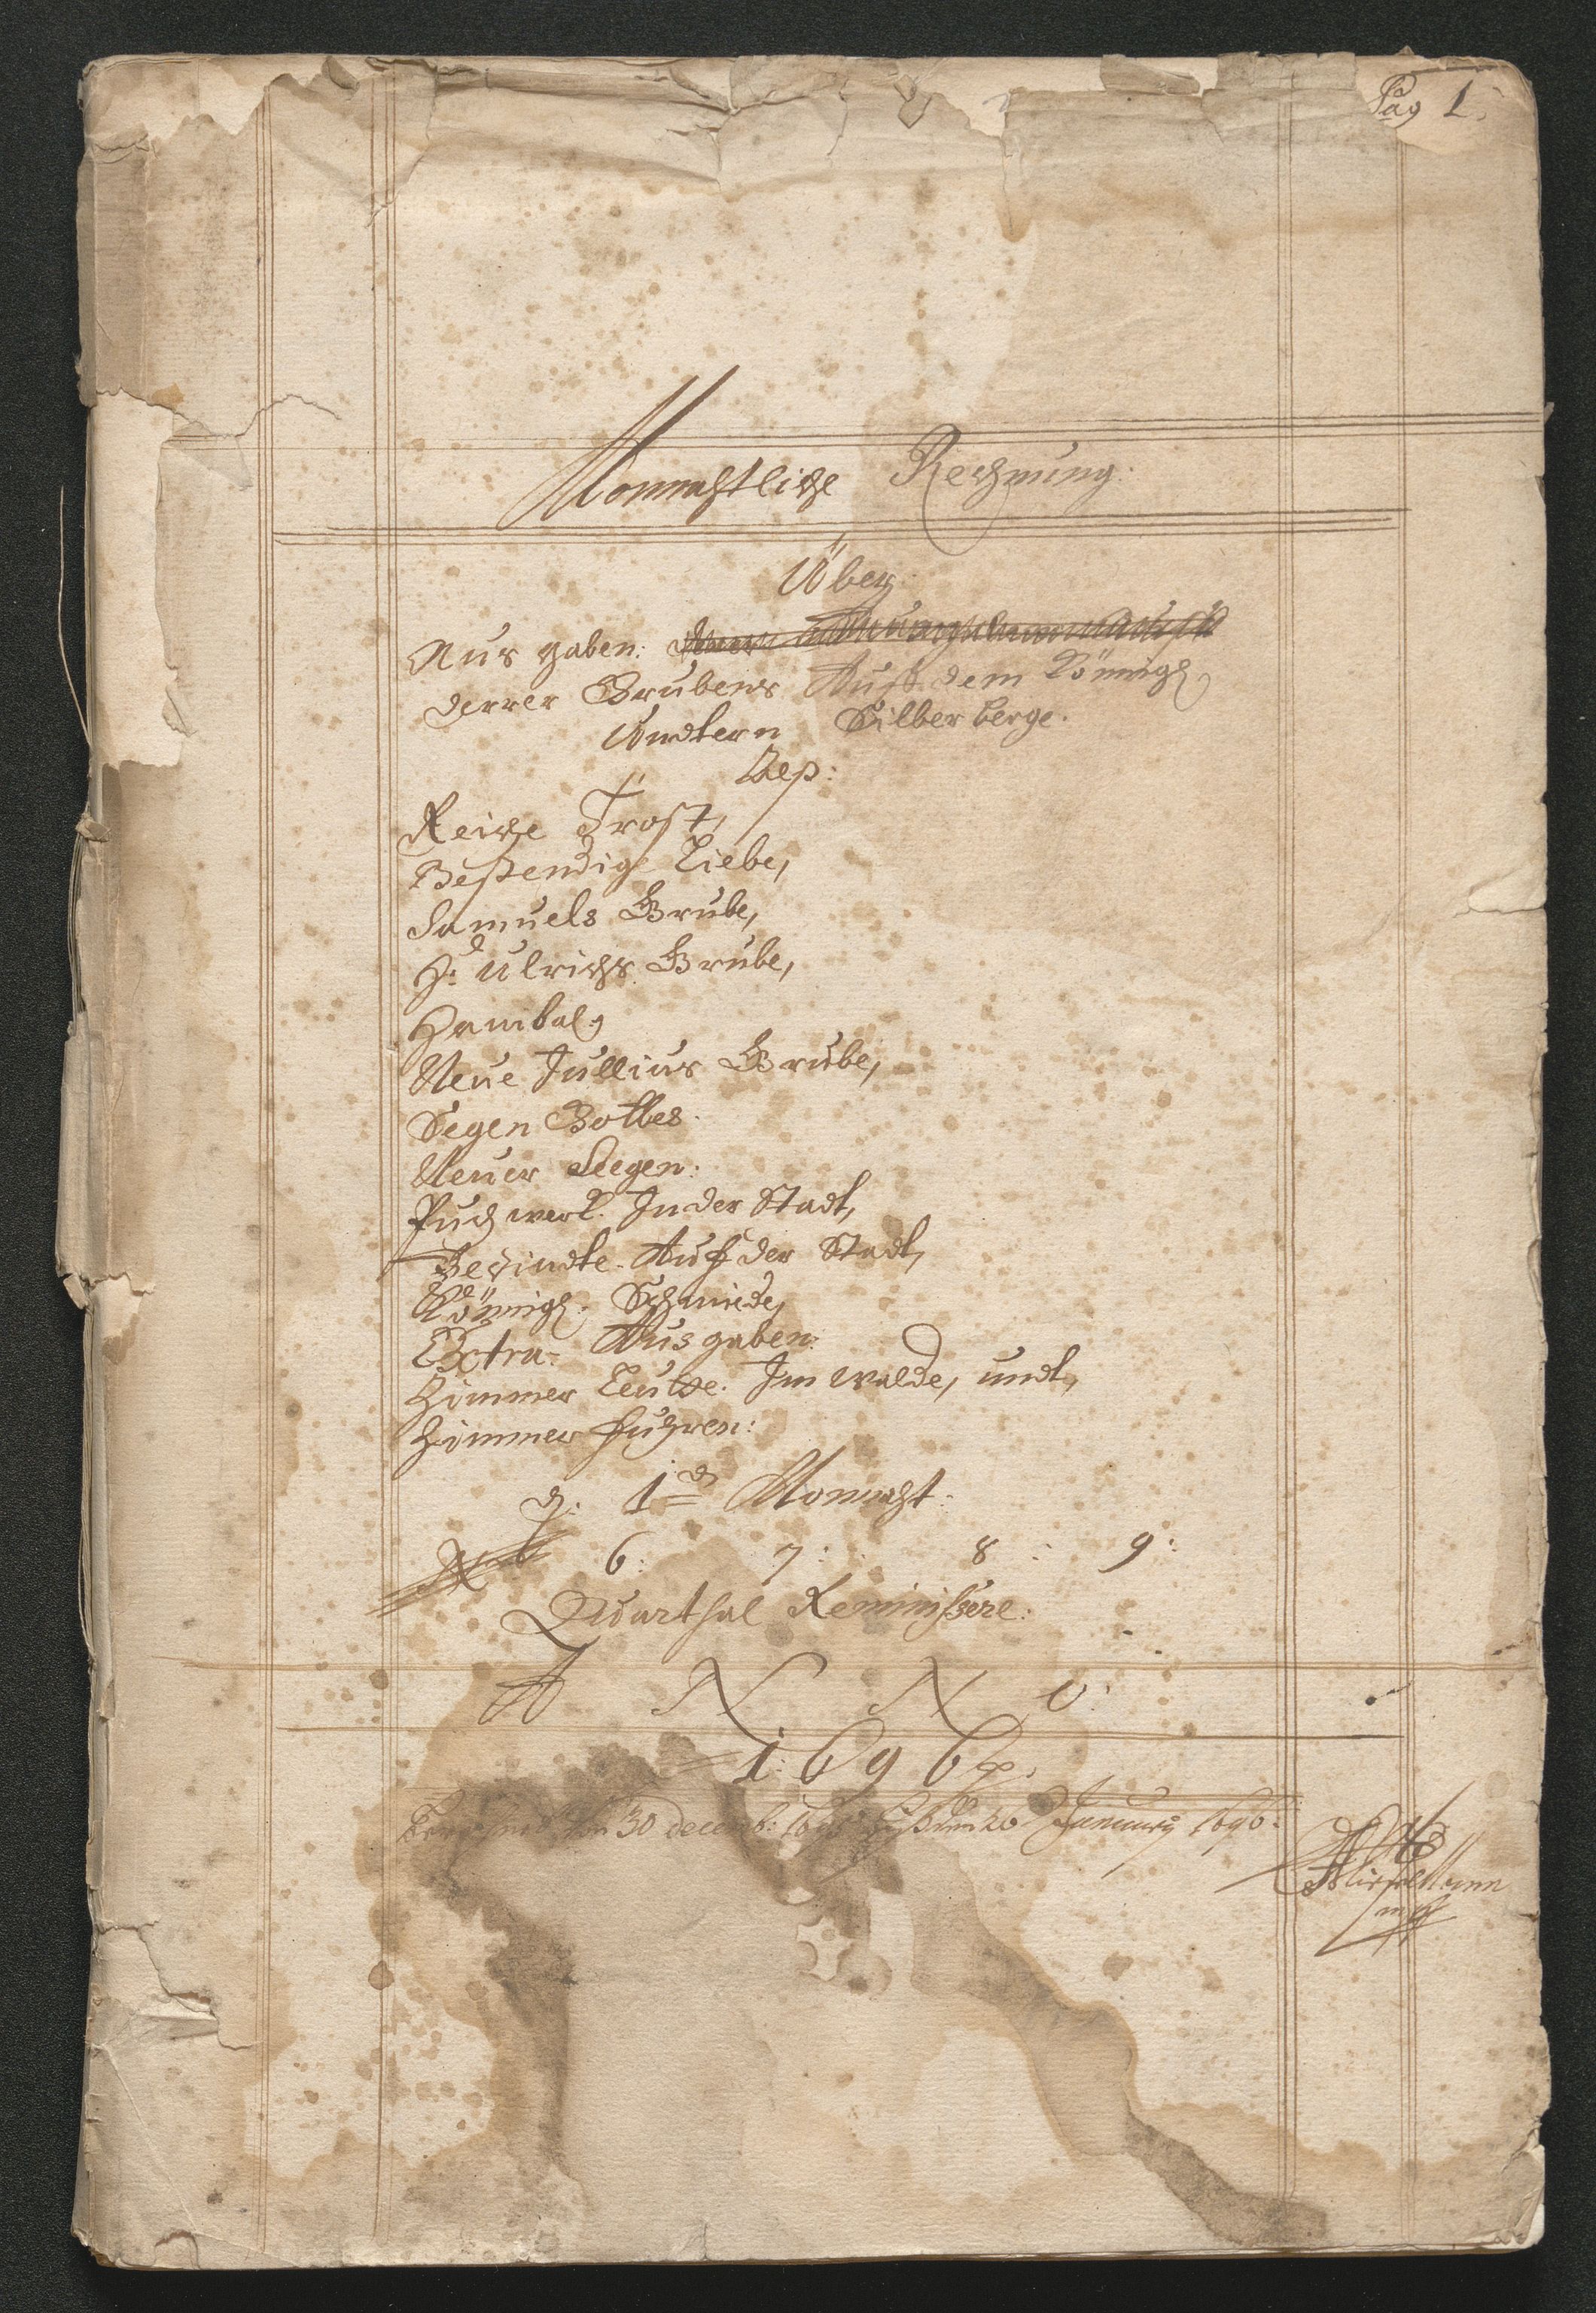 Pag 1.
Monnahtliche Rechnung:
Über
Aus gaben:
derrer Grubens Auff dem Königl
Undtern Silber berge.
Alß:
Reiche Trost,
Bestendige Liebe,
Samuels Grube,
H: Ulrichs Grube,
Hanibal,
Neue Jullius Grube,
Segen Gottes.
Neuer Seegen:
Puch werk. In der Stadt,
Gesindte. Auff der Stadt,
Königl. Schmiede,
Extra- Aus gaben:
Zimmer Leutte. Im walde, undt,
Zimmer fuhren:
d. 1 Monnaht:
6: 7: 8: 9:
Quarthal Reminissere:
A N N O:
1696
den 30 decemb: 1695 biß den 26 January 1696: